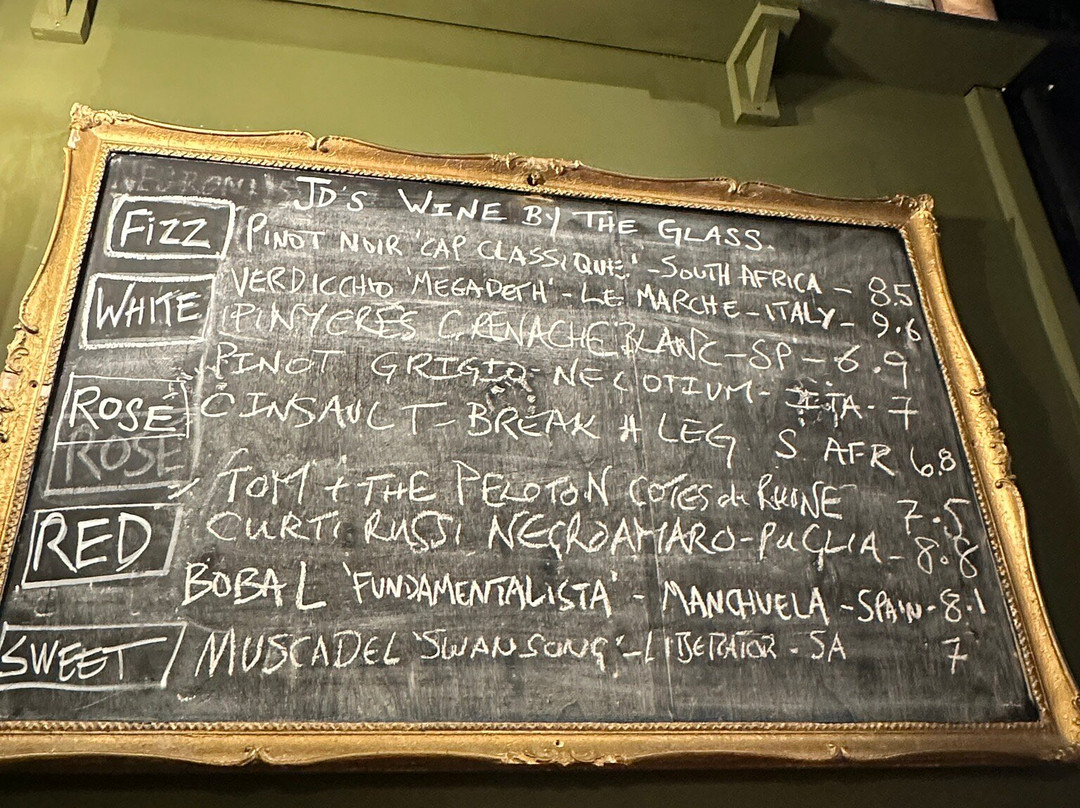 JD'S WINE BY THE GLASS.
FIZZ PINOT NOIR 'CAP CLASSIQUE' - SOUTH AFRICA - 8.5
WHITE VERDICCHIO 'MEGADETH' - LE MARCHE - ITALY - 9.6
PINYERES GRENACHE BLANC - SP - 6.9
PINOT GRIGIO - NEGOTIUM - ITA - 7
ROSE CINSAULT - BREAK A LEG S AFR 6.8
ROSE
TOM + THE PELOTON COTES du RHONE 7.5
RED CURTI RUSSI NEGROAMARO - PUGLIA - 8.8
BOBAL 'FUNDAMENTALISTA' - MANCHUELA - SPAIN - 8.1
SWEET MUSCADEL 'SWANSONG' - LIBERATOR - SA 7